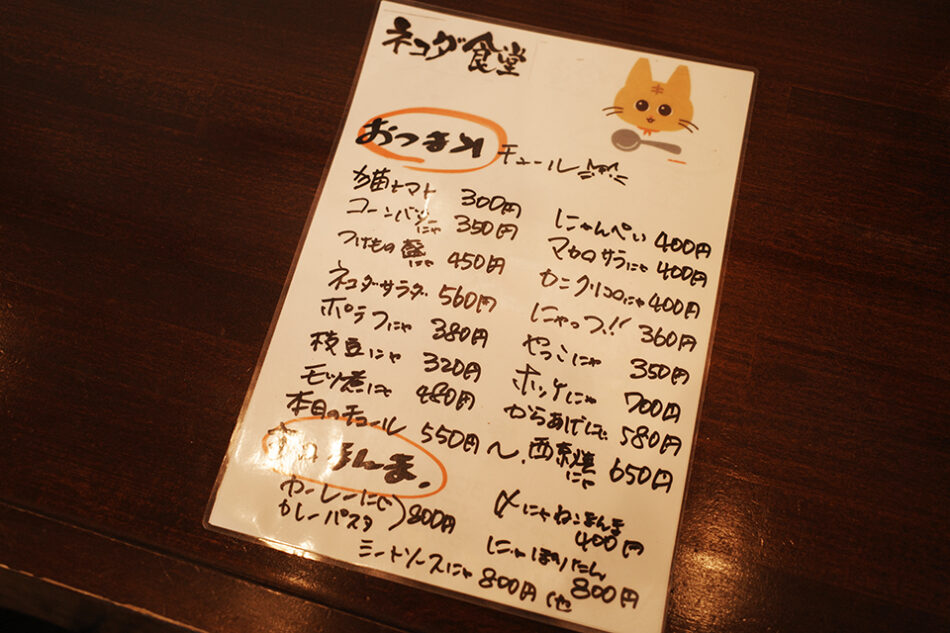 ネコダ食堂
おつまみ
チュール
猫トマト 300円
コーンバターにゃ 350円
つけもの盛にゃ 450円
ネコダサラダ 560円
ポテフにゃ 380円
枝豆にゃ 320円
モツ煮にゃ 480円
本日のチュール 550円〜
にゃんぺい 400円
マカロサラにゃ 400円
カニクリコロにゃ 400円
にゃっつ!! 360円
やっこにゃ 350円
ホッケにゃ 700円
からあげにゃ 580円
西京焼にゃ 650円
まんま
カレーパスタ 800円
ミートソースにゃ 800円 他
〆にゃねこまんま 400円
にゃぽりたん 800円